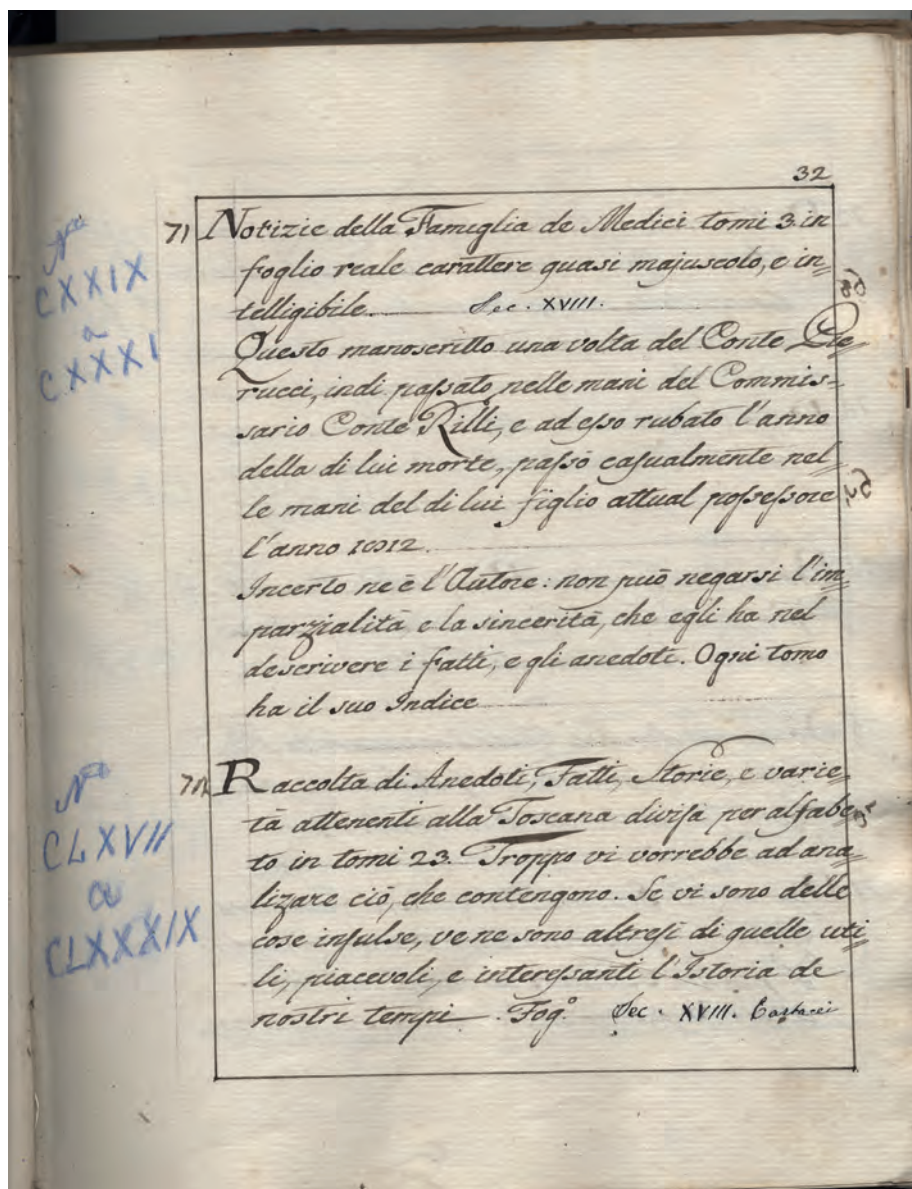 32
71 Notizie della Famiglia de Medici tomi 3. in
foglio reale carattere quasi majuscolo, e in=
telligibile. Sec. XVIII.
Questo manoscritto una volta del Conte Pie=
rucci, indi passato nelle mani del Commis=
sario Conte Rilli, e ad esso rubato l'anno
della di lui morte, passò casualmente nel=
le mani del di lui figlio attual possessore
l'anno
Incerto ne è l'Autore: non può negarsi l'im=
parzialità e la sincerità, che egli ha nel
descrivere i fatti, e gli anedoti. Ogni tomo
ha il suo Indice
Raccolta di Anedoti, Fatti, Storie, e varie=
tà attenenti alla Toscana divisa per alfabe=
to in tomi 23. Troppo vi vorrebbe ad ana=
lizare ciò, che contengono. Se vi sono delle
cose insulse, ve ne sono altresi di quelle uti=
li, piacevoli, e interessanti l'Istoria de
nostri tempi. Fog.º Sec. XVIII. Cartacei
Nº
CXXIX
a
CXXXI
Nº
CLXVII
a
CLXXXIX